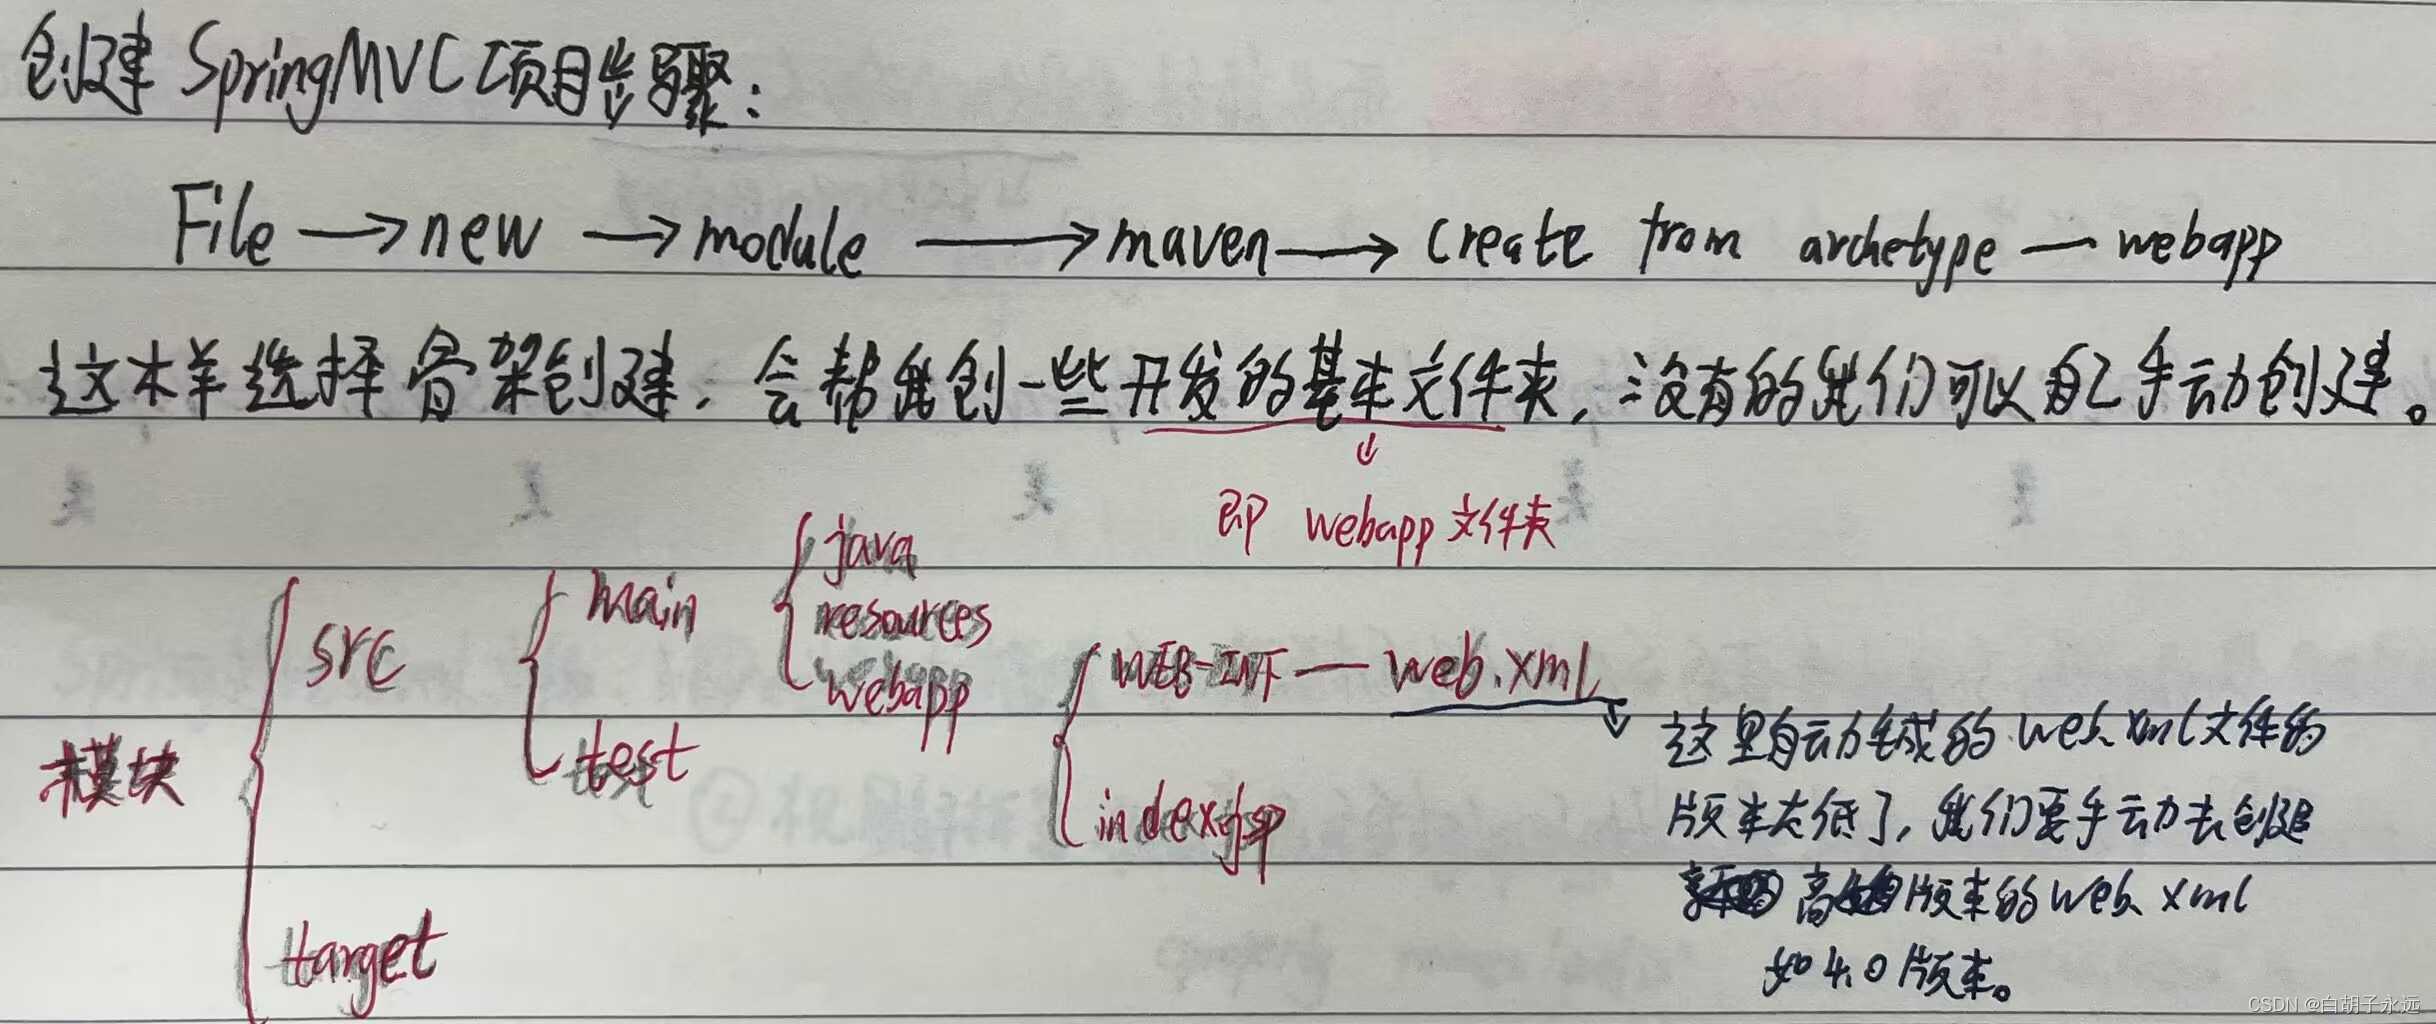 创建SpringMVC项目步骤：
File→new→module→maven→create from archetype—webapp
这样选择骨架创建，会帮我创一些开发的基本文件夹，没有的我们可以自己手动创建。
↓
即 webapp文件夹
模块
src
target
main
test
java
resources
webapp
WEB-INF—web.xml
index.jsp
这里自动生成的web.xml文件的
版本太低了，我们要手动去创建
高版本的web.xml
如4.0版本。
CSDN @白胡子永远